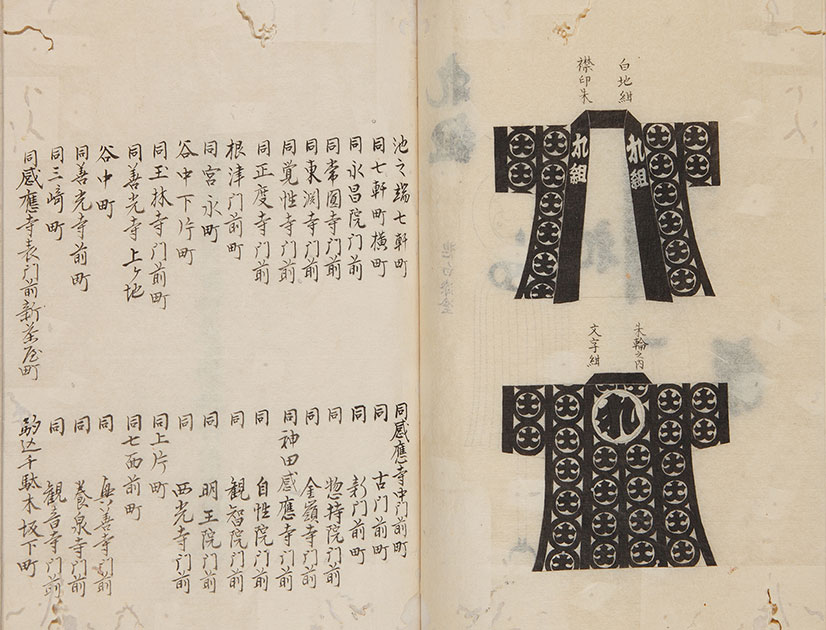 白地紺
襟印朱
れ組
れ組
朱輪之内
文字紺
れ
池之端七軒町
同七軒町横町
同永昌院門前
同常圓寺門前
同東渕寺門前
同覚性寺門前
同正慶寺門前
根津門前町
同宮永町
谷中下片町
同玉林寺門前町
同善光寺上ヶ地
谷中町
同善光寺前町
同三崎町
同感應寺表門前新茶屋町
同感應寺中門前町
同古門前町
同新門前町
同惣持院門前
同金嶺寺門前
同神田感應寺門前
同自性院門前
同観智院門前
同明王院門前
同西光寺門前
同上片町
同七面前町
同養泉寺門前
同観音寺門前
駒込千駄木坂下町